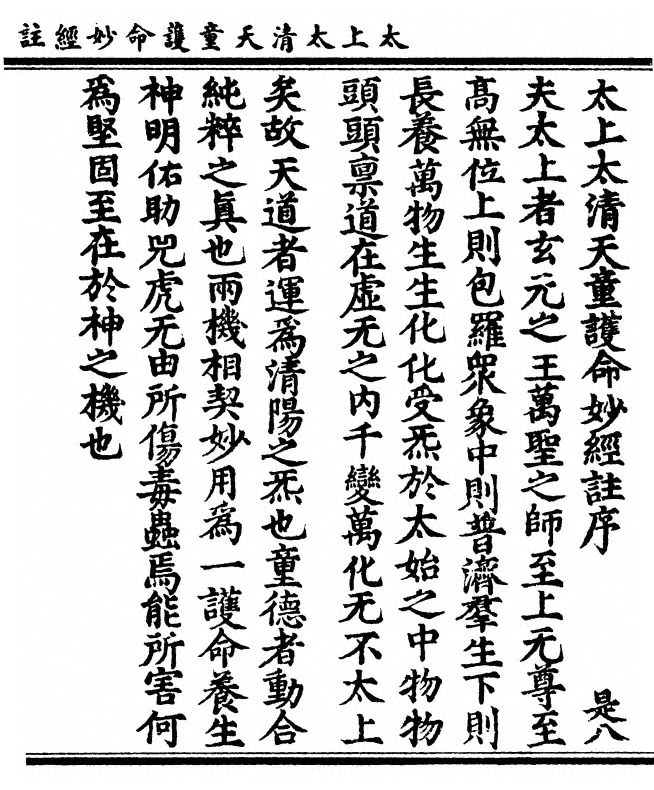 太上太清天童護命妙經註
太上太清天童護命妙經註序 是八
夫太上者玄元之王萬聖之師至上无尊至
高無位上則包羅眾象中則普濟羣生下則
長養萬物生生化化受炁於太始之中物物
頭頭禀道在虛无之內千變萬化无不太上
矣故天道者運為清陽之炁也童德者動合
純粹之眞也兩機相契妙用為一護命養生
神明佑助兕虎无由所傷毒蟲焉能所害何
為堅固至在於神之機也